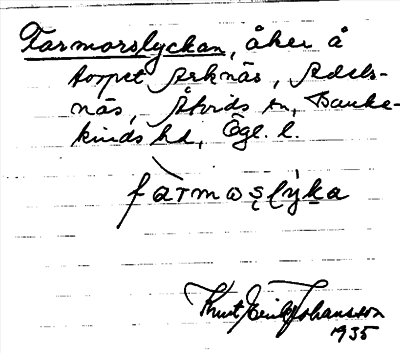 Farmorslyckan, åker å
torpet Arknäs, Adels-
näs, Åtvids sn, Banke-
kinds hd, Ögl. l.
farmoslyka
Knut Erik Johansson
1935